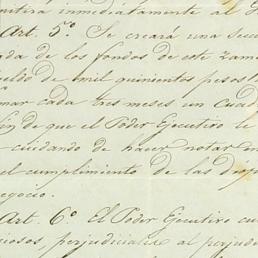 mitirá inmediatamente al
Art. 5º Se creará una
de los fondos de este ramo
sueldo de mil quinientos pesos
mar cada tres meses un
fin de que el Poder Ejecutivo le
cuidando de hacer notar
el cumplimiento de las
negocio.
Art. 6º El Poder Ejecutivo
perjudiciales al